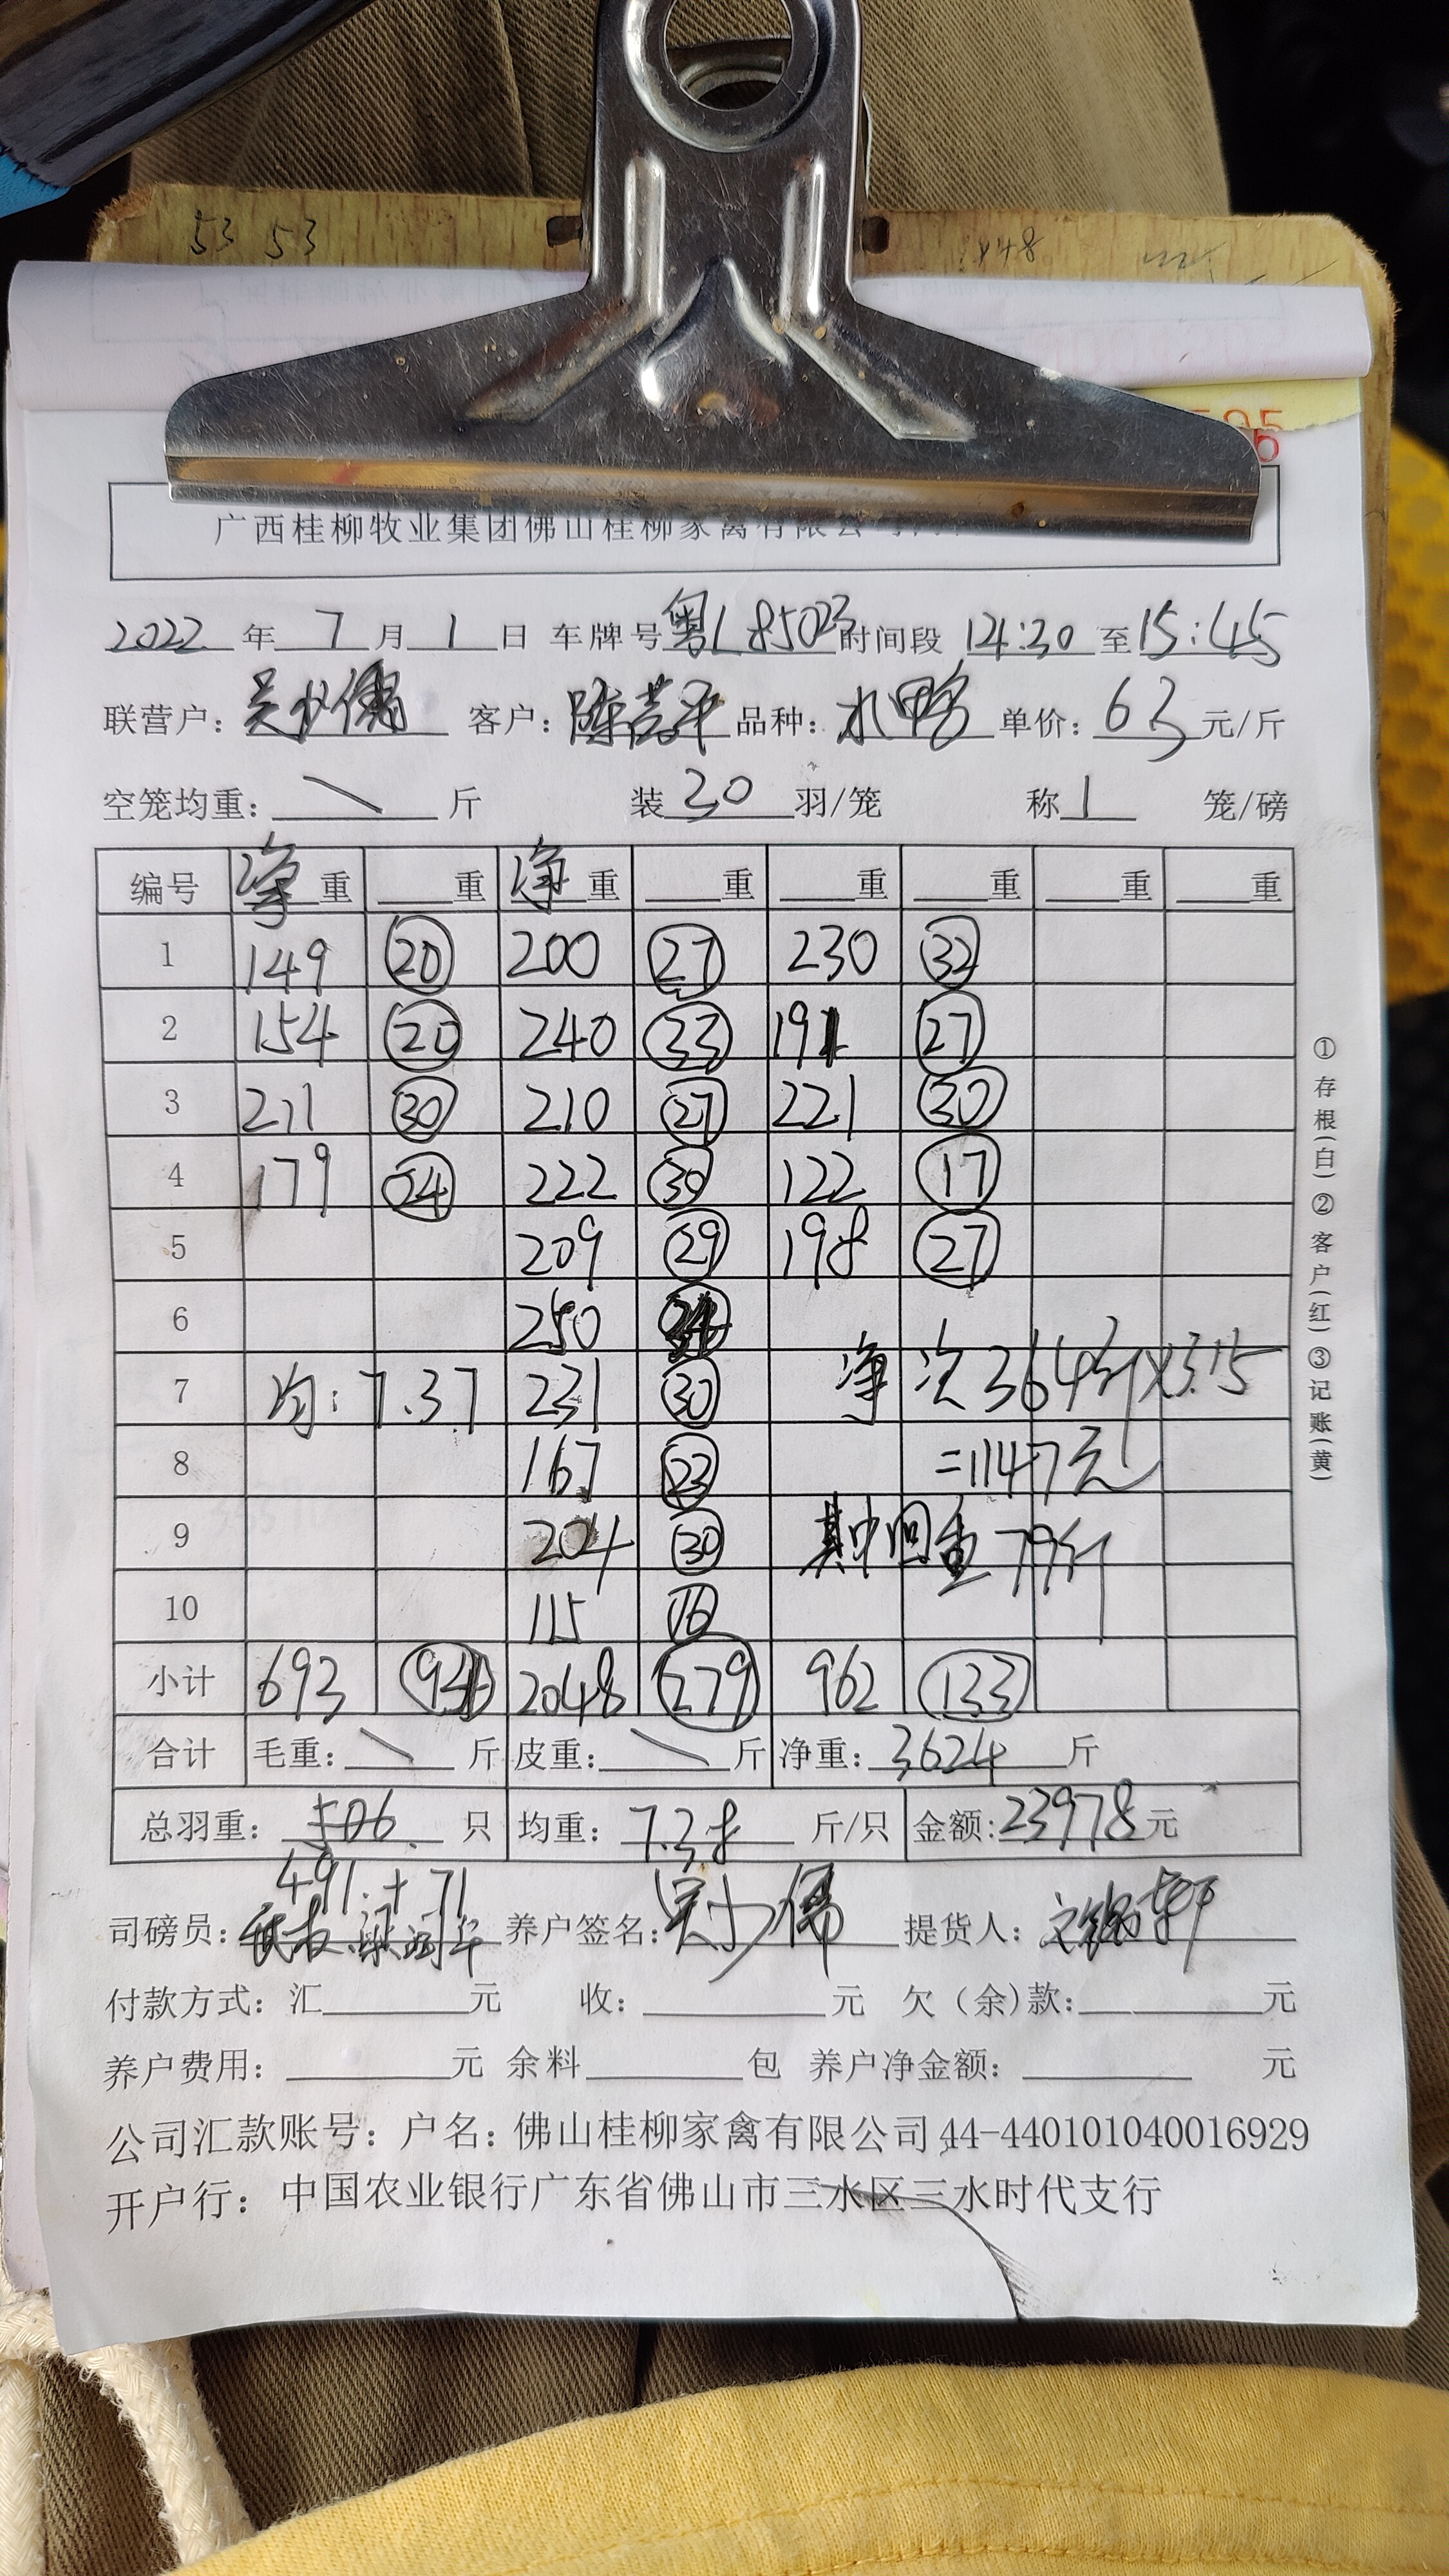 53 53
广西桂柳牧业集团佛山桂柳家禽有限公司
2022 年 7 月 1 日 车牌号 粤L 85023 时间段 14:30 至 15:45
联营户: 客户: 品种: 水鸭 单价: 63 元/斤
空笼均重: \ 斤 装 30 羽/笼 称 1 笼/磅
编号 净重 重 净重 重 重 重 重 重
1 149 20 200 27 230 32
2 154 20 240 33 191 27
3 211 30 210 27 221 30
4 179 24 222 30 122 17
5 209 29 198 27
6 250
7 均: 7.37 231 30 净次364斤×3.15
8 167 23 =1147元
9 204 30 其中回重79斤
10 115 16
小计 693 94 2048 279 962 133
合计 毛重: \ 斤 皮重: \ 斤 净重: 3624 斤
总羽重: 506 只 均重: 7.38 斤/只 金额: 23978 元
491 + 71
司磅员: 养户签名: 提货人:
付款方式: 汇 元 收: 元 欠（余）款: 元
养户费用: 元 余料 包 养户净金额: 元
公司汇款账号: 户名: 佛山桂柳家禽有限公司 44-440101040016929
开户行: 中国农业银行广东省佛山市三水区三水时代支行
①存根(白)②客户(红)③记账(黄)